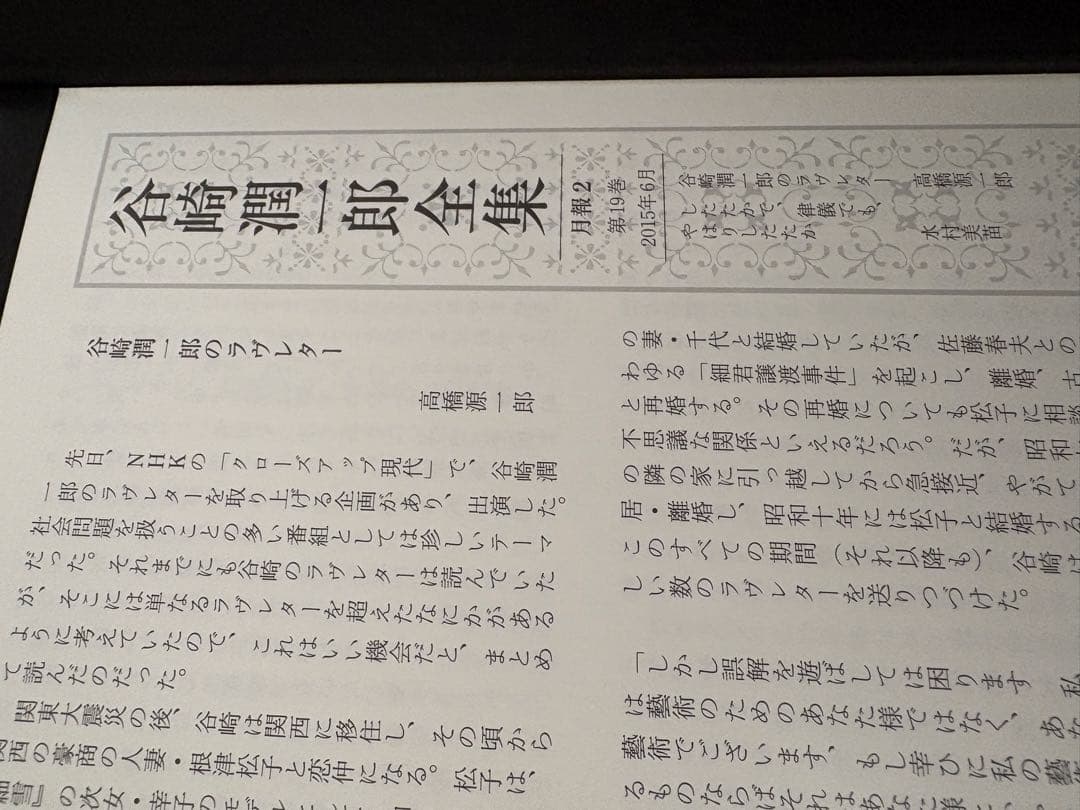 谷崎潤一郎全集
月報2
第19巻
2015年6月
谷崎潤一郎のラヴレター 高橋源一郎
したたかで、律儀でも、
やはりしたたか 水村美苗
谷崎潤一郎のラヴレター
高橋源一郎
先日、NHKの「クローズアップ現代」で、谷崎潤
一郎のラヴレターを取り上げる企画があり、出演した。
社会問題を扱うことの多い番組としては珍しいテーマ
だった。それまでにも谷崎のラヴレターは読んでいた
が、そこには単なるラヴレターを超えたなにかがある
ように考えていたので、これはいい機会だと、まとめ
て読んだのだった。
関東大震災の後、谷崎は関西に移住し、その頃から
関西の豪商の人妻・根津松子と恋仲になる。松子は、
細雪』の次女・幸子のモデル
の妻・千代と結婚していたが、佐藤春夫との
わゆる「細君譲渡事件」を起こし、離婚、古
と再婚する。その再婚についても松子に相談
不思議な関係といえるだろう。だが、昭和
の隣の家に引っ越してから急接近、やがて
居・離婚し、昭和十年には松子と結婚する
このすべての期間（それ以降も）、谷崎は
しい数のラヴレターを送りつづけた。
「しかし誤解を遊ばしては困ります 私
は藝術のためのあなた様ではなく、あな
藝術でございます、もし幸ひに私の藝
るものならばそれはあなた様